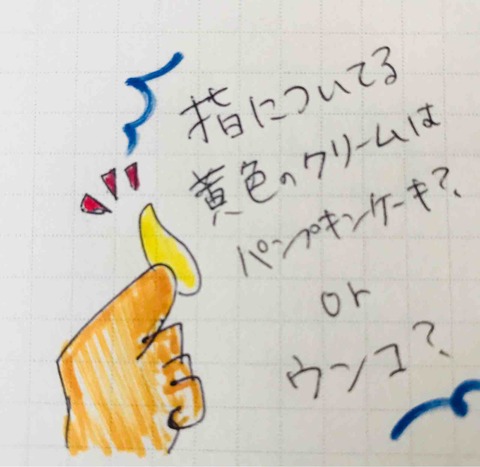 指についてる
黄色のクリームは
パンプキンケーキ?、
or
ウンコ?